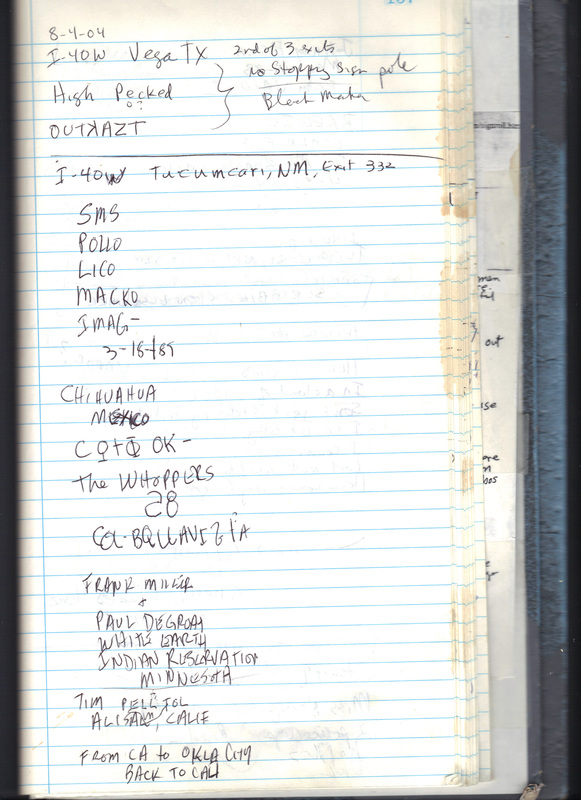 8-4-04
I-40W Vega TX 2nd of 3 exits
no Stopping Sign pole
High Pecked
Black Maka
OUTKAZT
I-40W Tucumcari, NM, Exit 332
SMS
POLLO
LICO
MACKO
IMAG-
3-18-89
CHIHUAHUA
MEXICO
OK-
The WHOPPERS
28
FRANK MILLER
+
PAUL DEGROAT
WHITE EARTH
INDIAN RESERVATION
MINNESOTA
TIM
CALIF
FROM CA to OKLA CITY
BACK TO CALI
men
out
ise
ere
m
bos